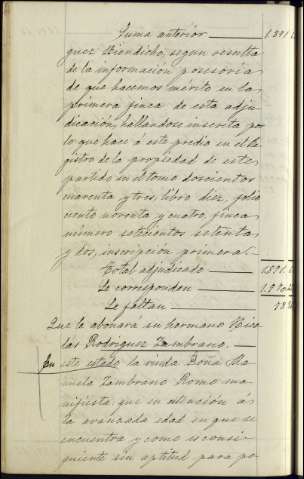 Suma anterior 1391
guez Biendicho, segun resulta
de la información posesoria
de que hacemos mérito en la
primera finca de esta adju-
dicación, hallandose inscrita por
lo que hace á este predio en el Re-
gistro de la propiedad de este
partido en el tomo doscientos
noventa y tres, libro diez, folio
ciento noventa y cuatro, finca
número setecientos setenta
y dos, inscripción primera.
Total adjudicado
Le corresponden
Le faltan
Que le abonará su hermano Nico
las Rodriguez Zambrano.
En este estado la viuda Doña Ma
nuela Zambrano Romo ma
nifiesta, que en atención á
la avanzada edad en que se
encuentra y como es consi-
guiente sin aptitud para po